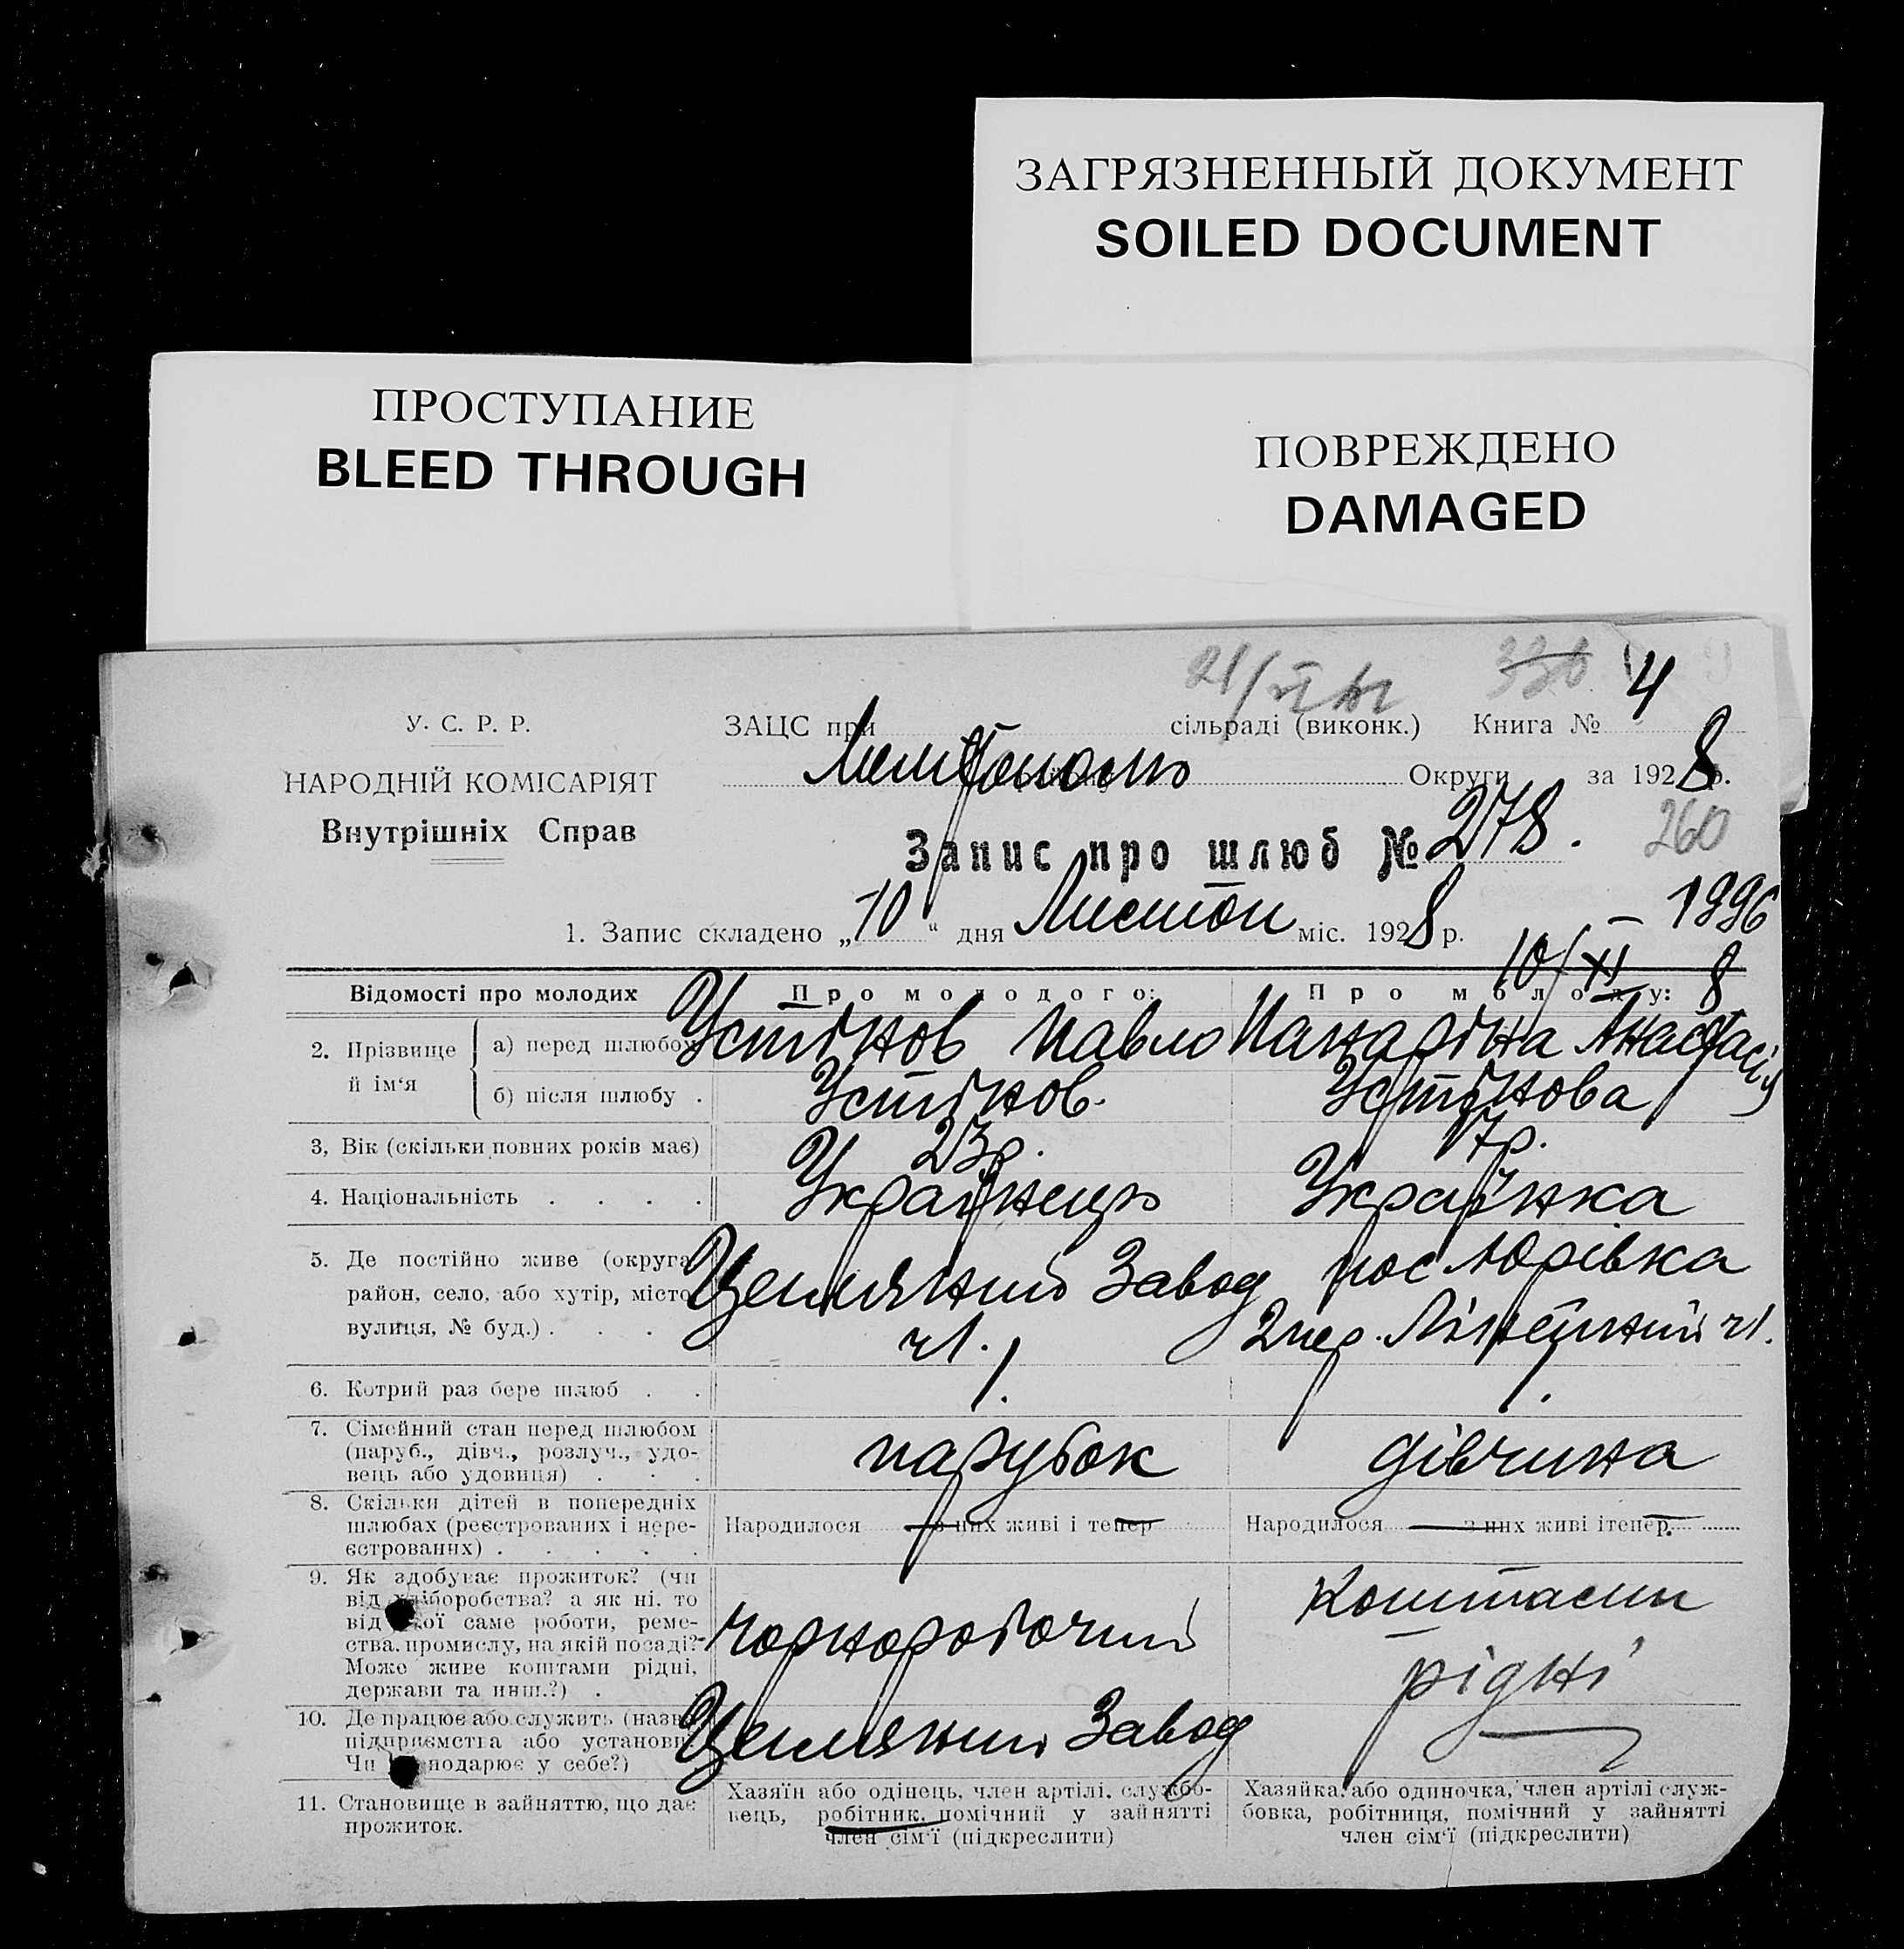 ЗАГРЯЗНЕННЫЙ ДОКУМЕНТ
SOILED DOCUMENT
ПРОСТУПАНИЕ
BLEED THROUGH
ПОВРЕЖДЕНО
DAMAGED
21/VI 330 4
У. С. Р. Р.
ЗАЦС при сільраді (виконк.) Книга № 4
НАРОДНІЙ КОМІСАРІЯТ
Внутрішніх Справ
Округи за 1928 р.
Запис про шлюб № 278. 260
1. Запис складено „10“ дня Листоп міс. 1928 р. – 1996
10/XI 8
Відомості про молодих Про молодого: Про молоду:
2. Прізвище й ім‘я а) перед шлюбом Устінов Павло Панаріна Анастасія
б) після шлюбу . Устінов. Устінова
3, Вік (скільки повних років має) 23р. 17р.
4. Національність . . . . Українець Українка
5. Де постійно живе (округа,
район, село, або хутір, місто
вулиця, № буд.) . . . .
Цемляний Завод
ч1.
пос Юрівка
2 пер. ч1.
6. Котрий раз бере шлюб . . 1. 1.
7. Сімейний стан перед шлюбом
(паруб., дівч., розлуч., удо-
вець або удовиця) . . .
парубок дівчина
8. Скільки дітей в попередніх
шлюбах (реєстрованих і нере-
єстрованих) . . . . .
Народилося — з них живі і тепер — Народилося — з них живі ітепер. —
9. Як здобуває прожиток? (чи
від хліборобства? а як ні, то
від якої саме роботи, реме-
ства, промислу, на якій посаді?
Може живе коштами рідні,
держави та инш.?) .
чорноробочий
Коштами
рідні
10. Де працює або служить (назва
підприємства або установи.
Чи господарює у себе?)
Цемляний Завод
11. Становище в зайняттю, що дає
прожиток.
Хазяїн або одінець, член артілі, службо-
вець, робітник, помічний у зайнятті
член сім‘ї (підкреслити)
Хазяйка, або одиночка, член артілі служ-
бовка, робітниця, помічний у зайнятті
член сім‘ї (підкреслити)